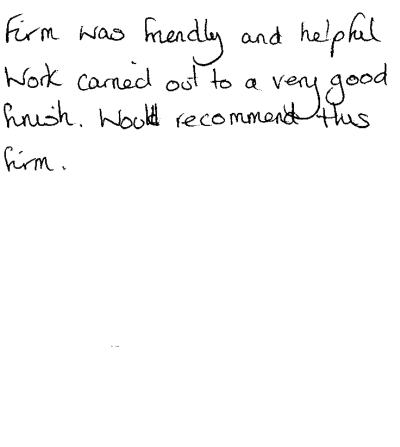 Firm was friendly and helpful
Work carried out to a very good
finish. Would recommend this
firm.